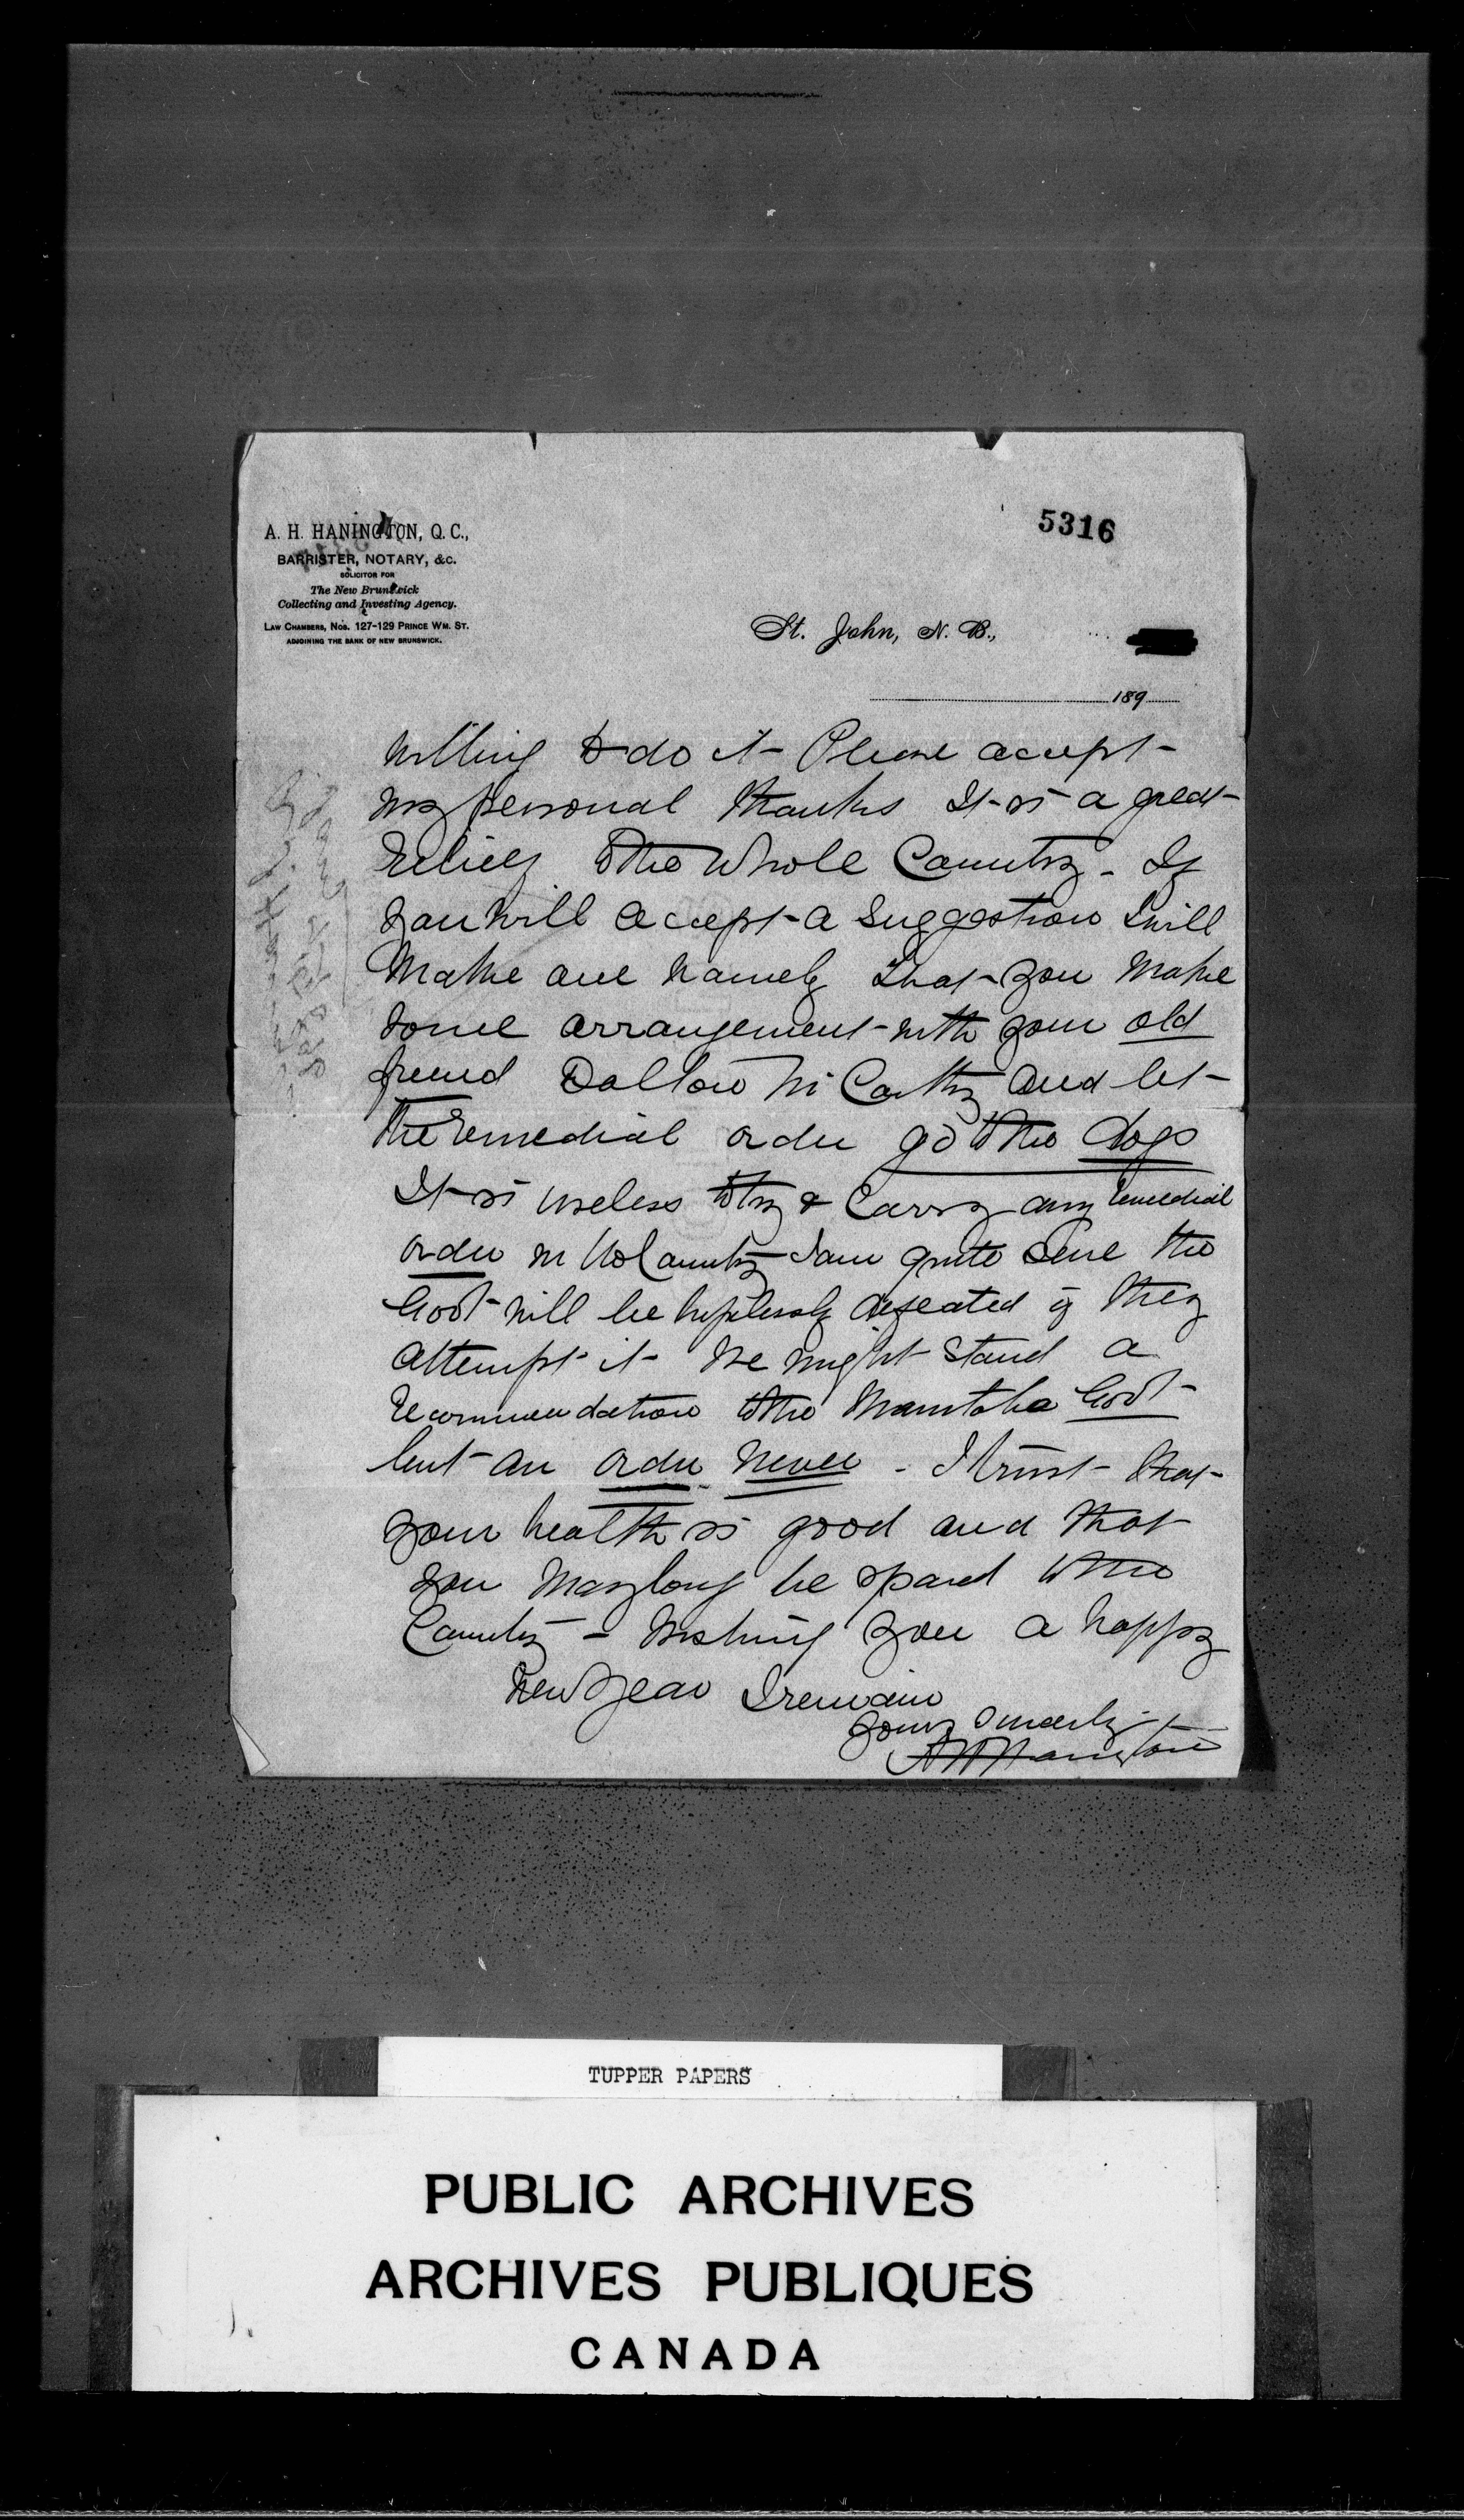 5316
A. H. HANINGTON, Q. C.,
BARRISTER, NOTARY, &c.
SOLICITOR FOR
The New Brunswick
Collecting and Investing Agency.
LAW CHAMBERS, NOS. 127-129 PRINCE WM. ST.
ADJOINING THE BANK OF NEW BRUNSWICK.
St. John, N. B.,
189
willing to do it - Please accept
my personal thanks It is a great
relief to the whole Country - If
you will accept a suggestion I will
make one namely that you make
some arrangement with your old
friend Dalton McCarthy and let
the remedial order go to the dogs
It is useless to try & carry any remedial
order in the Country I am quite sure the
Govt will be hopelessly defeated if they
attempt it - We might stand a
recommendation to the Manitoba Govt
but an order never - I trust that
your health is good and that
you may long be spared to the
Country - Wishing you a happy
new year I remain
yours sincerely
A H Hanington
TUPPER PAPERS
PUBLIC ARCHIVES
ARCHIVES PUBLIQUES
CANADA